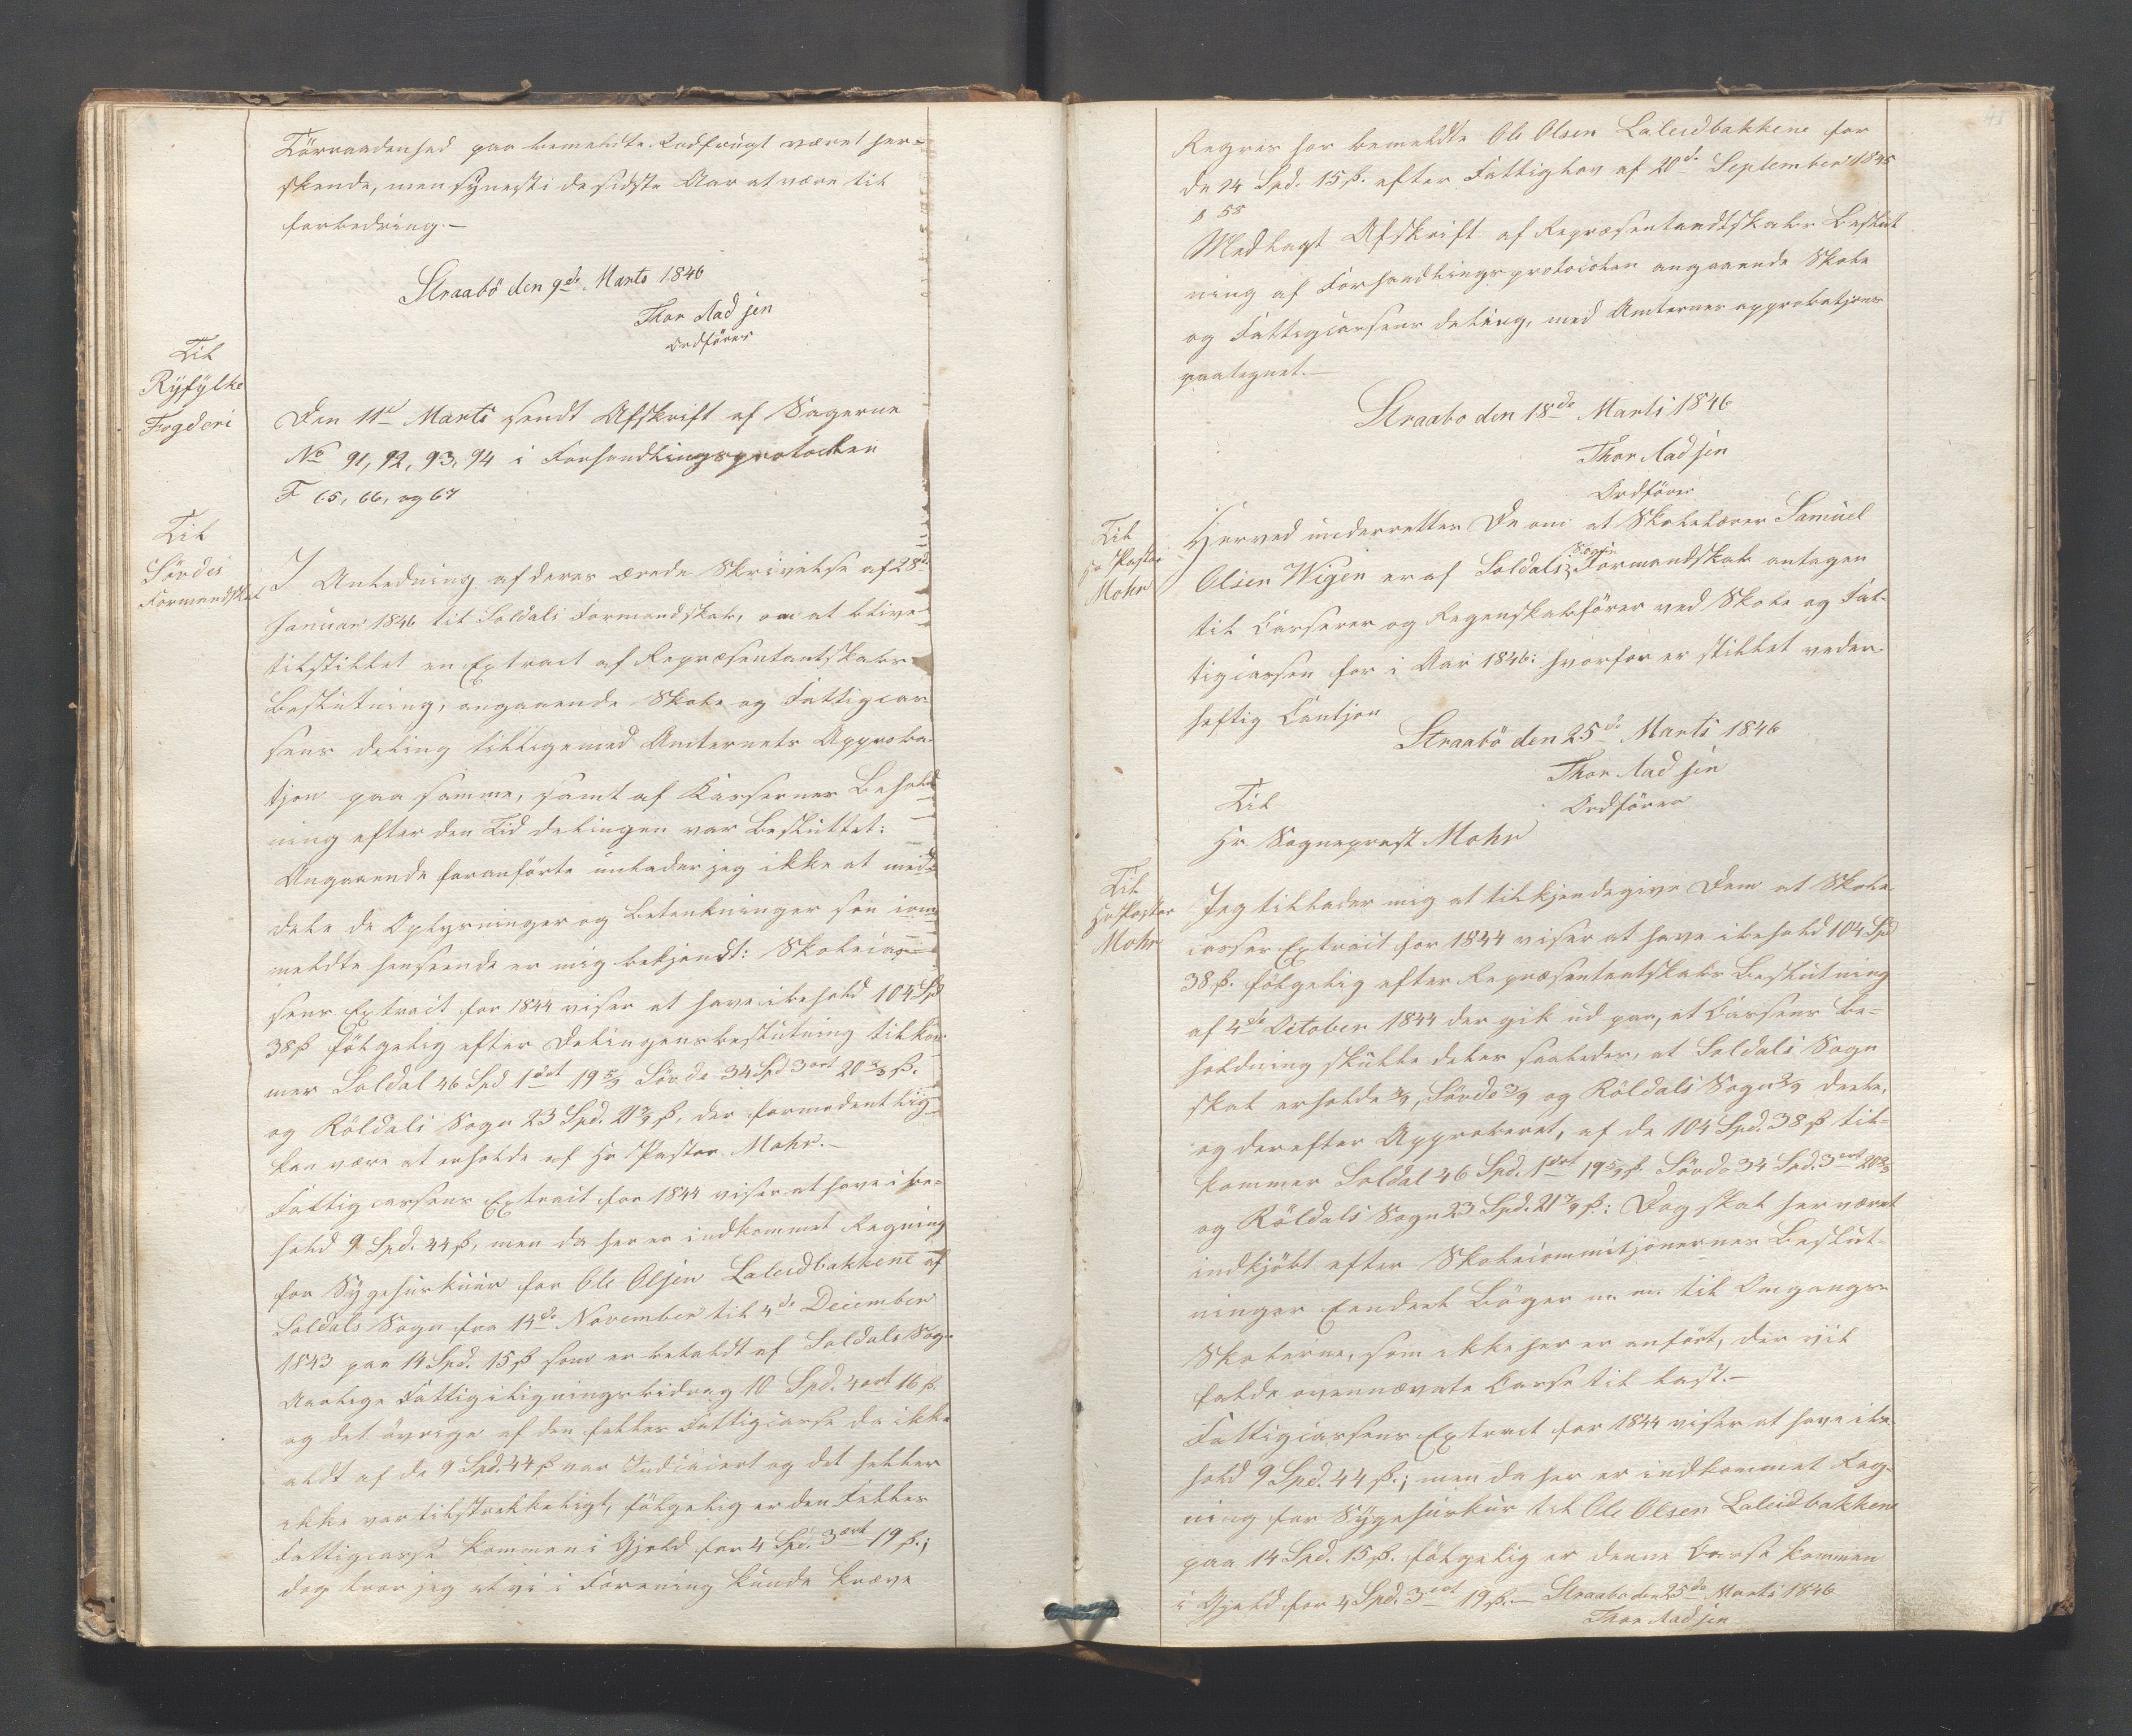 Törraadenhed paa bemeldte Rodfrugt været her-
skende, men synest i de sidste Aar at være til
forbedring.—
Straabö den 9de Marts 1846
Thor Aadsen
Ordförer
Til
Ryfylke
Fogderi
Den 11te Marts sendt Afskrift af Sagerne
No 91, 92, 93, 94 i Forhandlingsprotocollen
F 65, 66, og 67
Til
Sövdes
Formandskab
I Anledning af deres ærede Skrivelse af 28de
Januar 1846 til Soldals Formandskab, om at blive
tilstillet en Extract af Repræsentantskabs
Beslutning, angaaende Skole og Fattigcas
sens deling tilligemed Amternets Approba-
tjon paa samme, samt af Kassernes Behold
ning efter den Tid delingen var besluttet:
Angaaende foranförte unlader jeg ikke at med-
dele de Oplysninger og Betenkninger som i om-
meldte henseende er mig bekjendt: Skolecas-
sens Extract for 1844 viser at have ibehold 104 Spd
38 ß fölgelig efter Delingensbeslutning tilkom
mer Soldal 46 Spd 1ort 19 5/9 Sövde 34 Spd 3ort 20 2/3 ß.
og Röldals Sogn 23 Spd. 21 7/9 ß, der formodentlig
kan være at erholde af Hr Pastor Mohr.—
Fattigcassens Extract for 1844 viser at have i be-
hold 9 Spd. 44 ß, men da her er indkommet Regning
for Sygehuskuur for Ole Olsen Laleidbakkene af
Soldals Sogn fra 14de November til 4de December
1843 paa 14 Spd. 15 ß som er betaldt af Soldals Sogn
Aarlige Fattigiligningsbidrag 10 Spd. 4ort 16 ß.
og det övrige af den felles Fattigcasse da ikke
aldt af de 9 Spd. 44 ß var Indcaceert og det heller
ikke var tilstrekkeligt, fölgelig er den Felles
Fattigcasse kommen i Gjeld for 4 Spd. 3ort 19 ß.;
dog tror jeg at vi i Forening kunde kræve
Regres hos bemeldte Ole Olsen Laleidbakkene for
de 14 Spd. 15 ß. efter Fattiglov af 20de September 1845
§ 55
Medlagt Afskrift af Repræsentandtskabs Beslut
ning af Forhandlingsprotocolen angaaende Skole
og Fattigcassens deling, med Amternes approbatjons
paategnet.—
Straabo den 18de Marts 1846
Thor Aadsen
Ordförer
Til
Hr Pastor
Mohr
Herved underretter De om at Skolelærer Samuel
Olsen Wigen er af Soldals Sogns Formandskab antagen
til Casserer og Regenskabsförer ved Skole og Fat-
tigcassen for i Aar 1846: hvorfor er stillet veder-
heftig Cautjon
Straabö den 25de Marts 1846
Thor Aadsen
Ordförer
Til
Hr. Sogneprest Mohr
Til
Hr Pastor
Mohr
Jeg tillader mig at tilkjendegive Dem at Skole
cassen Extract for 1844 viser at have ibehold 104 Spd
38 ß. fölgelig efter Repræsentantskabs Beslutning
af 4de October 1844 der gik ud paa, at Cassens Be-
holdning skulle deles saaledes, at Soldals Sogn
skal erholde 4/9, Sövde 3/9 og Röldals Sogn 2/9 deele,
og derefter Approberet, af de 104 Spd. 38 ß til-
kommer Soldal 46 Spd. 1ort 19 5/9 ß. Sövde 34 Spd. 3ort 20 2/3
og Röldals Sogn 23 Spd. 21 7/9 ß.: Dog skal her været
indkjöbt efter Skolecommisjonernes Beslut-
ninger Eendeel Böger m. m. til Omgangs-
Skolerne, som ikke her er anfört, der vil
falde ovennævnte Casse til last.—
Fattigcassens Extract for 1844 viser at have ibe-
hold 9 Spd. 44 ß.; men da her er indkommet Reg-
ning for Sygehuskur til Ole Olsen Laleidbakken
paa 14 Spd. 15 ß. fölgelig er denne Casse kommen
i Gjeld for 4 Spd. 3ort 19 ß.— Straabo den 25de Marts 1846
Thor Aadsen